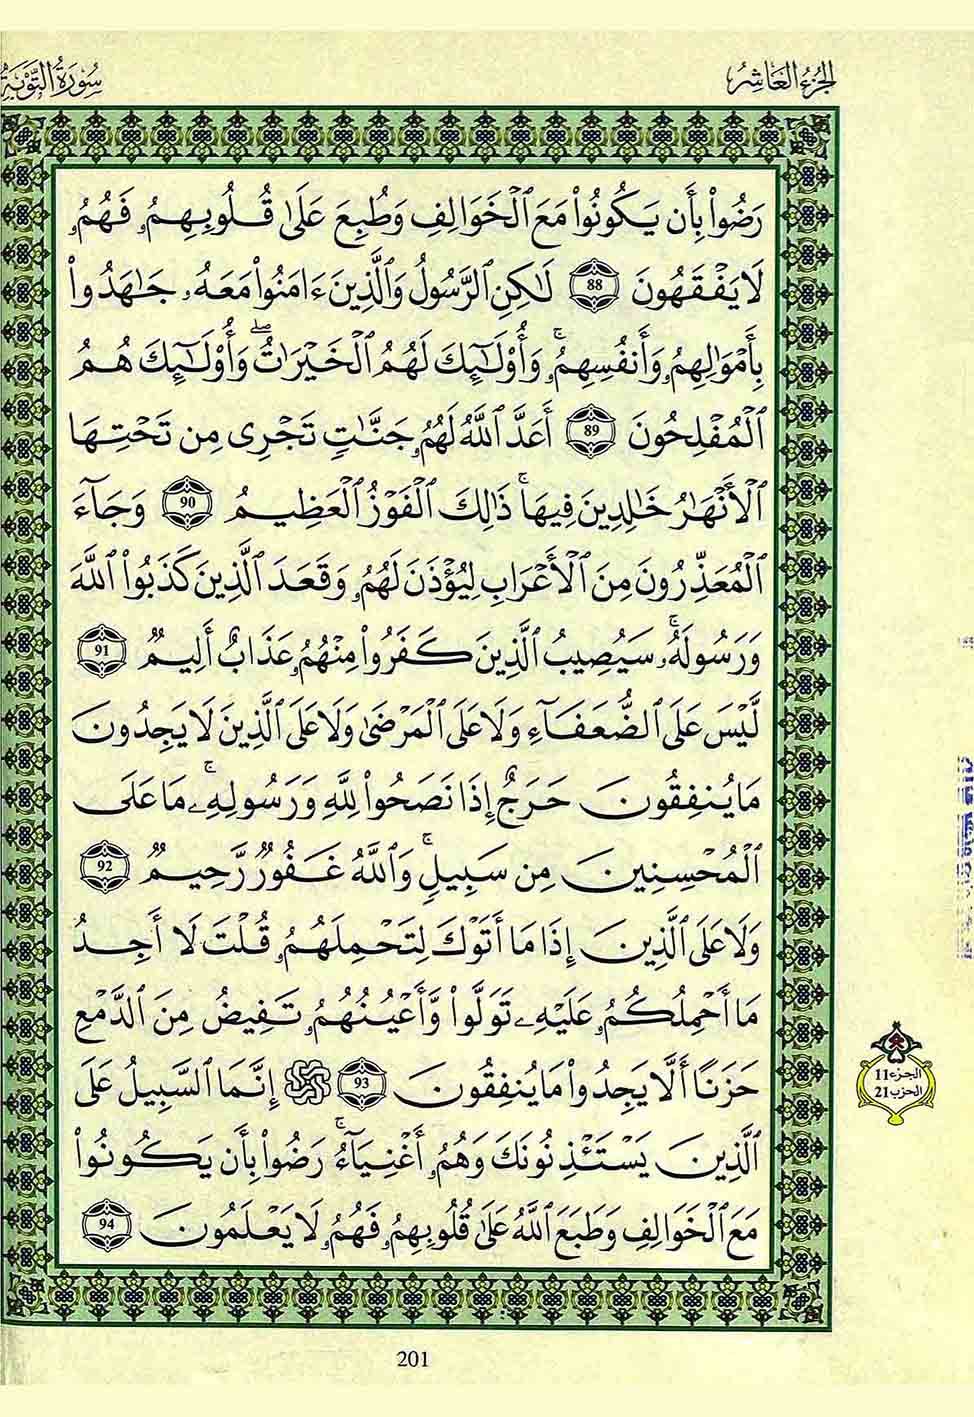 الجزء العاشر
سورة التوبة
رَضُواْ بِأَن يَكُونُواْ مَعَ اَ۬لْخَوَالِفِ وَطُبِعَ عَلَىٰ قُلُوبِهِمُۥ فَهُمُۥ
لَا يَفْقَهُونَ 88 لَٰكِنِ اِ۬لرَّسُولُ وَالَّذِينَ ءَامَنُواْ مَعَهُۥ جَٰهَدُواْ
بِأَمْوَٰلِهِمُۥ وَأَنفُسِهِمُۥۚ وَأُوْلَٰٓئِكَ لَهُمُ اُ۬لْخَيْرَٰتُۖ وَأُوْلَٰٓئِكَ هُمُ
اُ۬لْمُفْلِحُونَ 89 أَعَدَّ اَ۬للَّهُ لَهُمُۥ جَنَّٰتٍ تَجْرِى مِن تَحْتِهَا
اَ۬لْأَنْهَٰرُ خَٰلِدِينَ فِيهَاۚ ذَٰلِكَ اَ۬لْفَوْزُ اُ۬لْعَظِيمُ 90 وَجَآءَ
اَ۬لْمُعَذِّرُونَ مِنَ اَ۬لْأَعْرَابِ لِيُؤْذَنَ لَهُمُۥ وَقَعَدَ اَ۬لَّذِينَ كَذَبُواْ اُ۬للَّهَ
وَرَسُولَهُۥۚ سَيُصِيبُ اُ۬لَّذِينَ كَفَرُواْ مِنْهُمُۥ عَذَابٌ أَلِيمٌ 91
لَّيْسَ عَلَى اَ۬لضُّعَفَآءِ وَلَا عَلَى اَ۬لْمَرْضَىٰ وَلَا عَلَى اَ۬لَّذِينَ لَا يَجِدُونَ
مَا يُنفِقُونَ حَرَجٌ إِذَا نَصَحُواْ لِلهِ وَرَسُولِهِۦۚ مَا عَلَى
اَ۬لْمُحْسِنِينَ مِن سَبِيلٍۚ وَاللَّهُ غَفُورٌ رَّحِيمٌ 92
وَلَا عَلَى اَ۬لَّذِينَ إِذَا مَا أَتَوْكَ لِتَحْمِلَهُمُۥ قُلْتَ لَا أَجِدُ
مَا أَحْمِلُكُمُۥ عَلَيْهِۦ تَوَلَّواْ وَّأَعْيُنُهُمُۥ تَفِيضُ مِنَ اَ۬لدَّمْعِ
حَزَنًا أَلَّا يَجِدُواْ مَا يُنفِقُونَ 93 إِنَّمَا اَ۬لسَّبِيلُ عَلَى
اَ۬لَّذِينَ يَسْتَـْٔذِنُونَكَ وَهُمُۥ أَغْنِيَآءُۚ رَضُواْ بِأَن يَكُونُواْ
مَعَ اَ۬لْخَوَالِفِ وَطَبَعَ اَ۬للَّهُ عَلَىٰ قُلُوبِهِمُۥ فَهُمُۥ لَا يَعْلَمُونَ 94
الجزء 11
الحزب 21
201